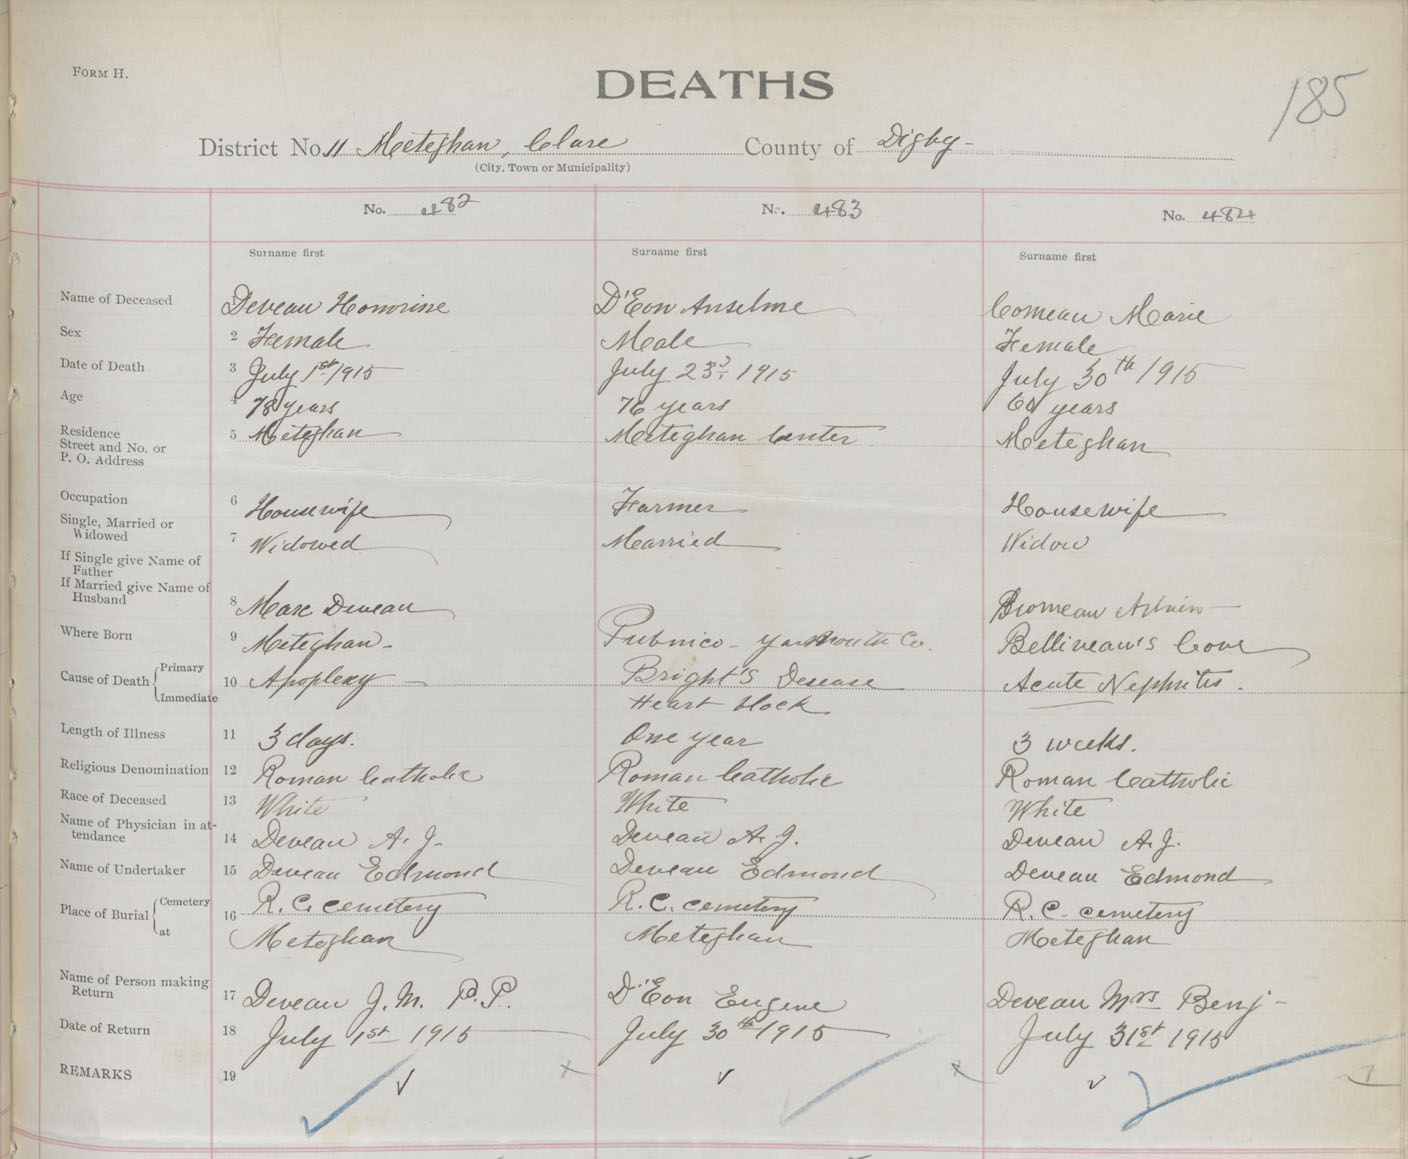 FORM H.
DEATHS
185
District No. 11 Meteghan, Clare County of Digby-
(City, Town or Municipality)
No. 482 No. 483 No. 484
Surname first Surname first Surname first
Name of Deceased Deveau Honorine D'Eon Anselme Comeau Marie
Sex 2 Female Male Female
Date of Death 3 July 1st 1915 July 23rd, 1915 July 30th 1915
Age 4 78 years 76 years years
Residence
Street and No. or
P. O. Address
5 Meteghan Meteghan Center Meteghan
Occupation 6 Housewife Farmer Housewife
Single, Married or
Widowed
7 Widowed Married Widow
If Single give Name of
Father
If Married give Name of
Husband
8 Marc Deveau
Where Born 9 Meteghan- Pubnico- Yarmouth Co. Belliveau's Cove
Cause of Death { Primary
Immediate
10 Apoplexy Bright's Desease Acute Nephritis.
Heart block
Length of Illness 11 3 days. One year 3 weeks.
Religious Denomination 12 Roman Catholic Roman Catholic Roman Catholic
Race of Deceased 13 White White White
Name of Physician in at-
tendance
14 Deveau A. J. Deveau A. J. Deveau A. J.
Name of Undertaker 15 Deveau Edmond Deveau Edmond Deveau Edmond
Place of Burial { Cemetery
at
16 R. C. cemetery R. C. cemetery R. C. cemetery
Meteghan Meteghan Meteghan
Name of Person making
Return
17 Deveau J. M. P.P. D'Eon Eugene Deveau Mrs Benj-
Date of Return 18 July 1st 1915 July 30th 1915 July 31st 1915
REMARKS 19